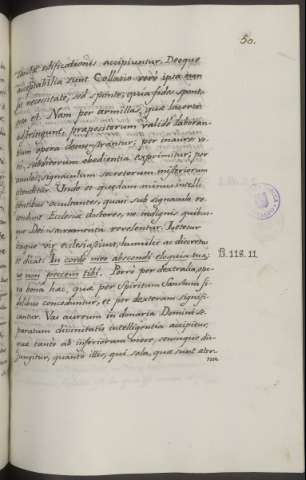 50.
edificationi accipiuntur. Deoque
acceptabilia sunt. Collatio vero ipsa non
ex necessitate, sed sponte, quia fides spont-
est. Nam per armillas, quæ lacertos
adstringunt, præpositorum valide laboran-
tium opera demonstrantur; per inaures ve-
ro, subditorum obedientia exprimitur; per
annulos, signaculum secretorum mysteriorum
ostenditur. Unde et quædam minus intelli-
gentibus occultantes, quasi sub signaculo
Ecclesiæ doctores, ne indignis quibus-
Dei sacramenta revelentur.
vir ecclesiasticus, humilis ac discretus
et dicat: In corde meo abscondi eloquia tua,
ut non peccem tibi. Porro per dextralia,
bona hæc, quæ per Spiritum Sanctum fi-
delibus conceduntur, et per dexteram signifi-
cantur. Vas aureum in donaria Domini se-
paratum divinitatis intelligentia accipitur,
quæ tanto ab inferiorum more, seorsum dis-
jungitur, quanto illis, qui sola, quæ sunt ater-
na
P. 118. 11